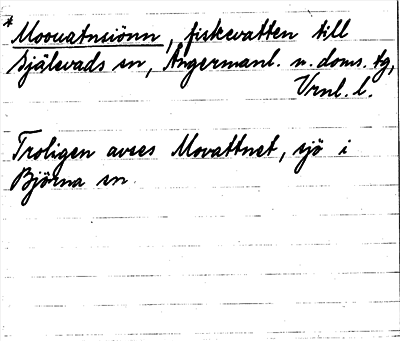 * Moouatnsiönn, fiskevatten till
Själevads sn, Ångermanl. n. doms. tg,
Vrnl. l.
Troligen avses Movattnet, sjö i
Björna sn.